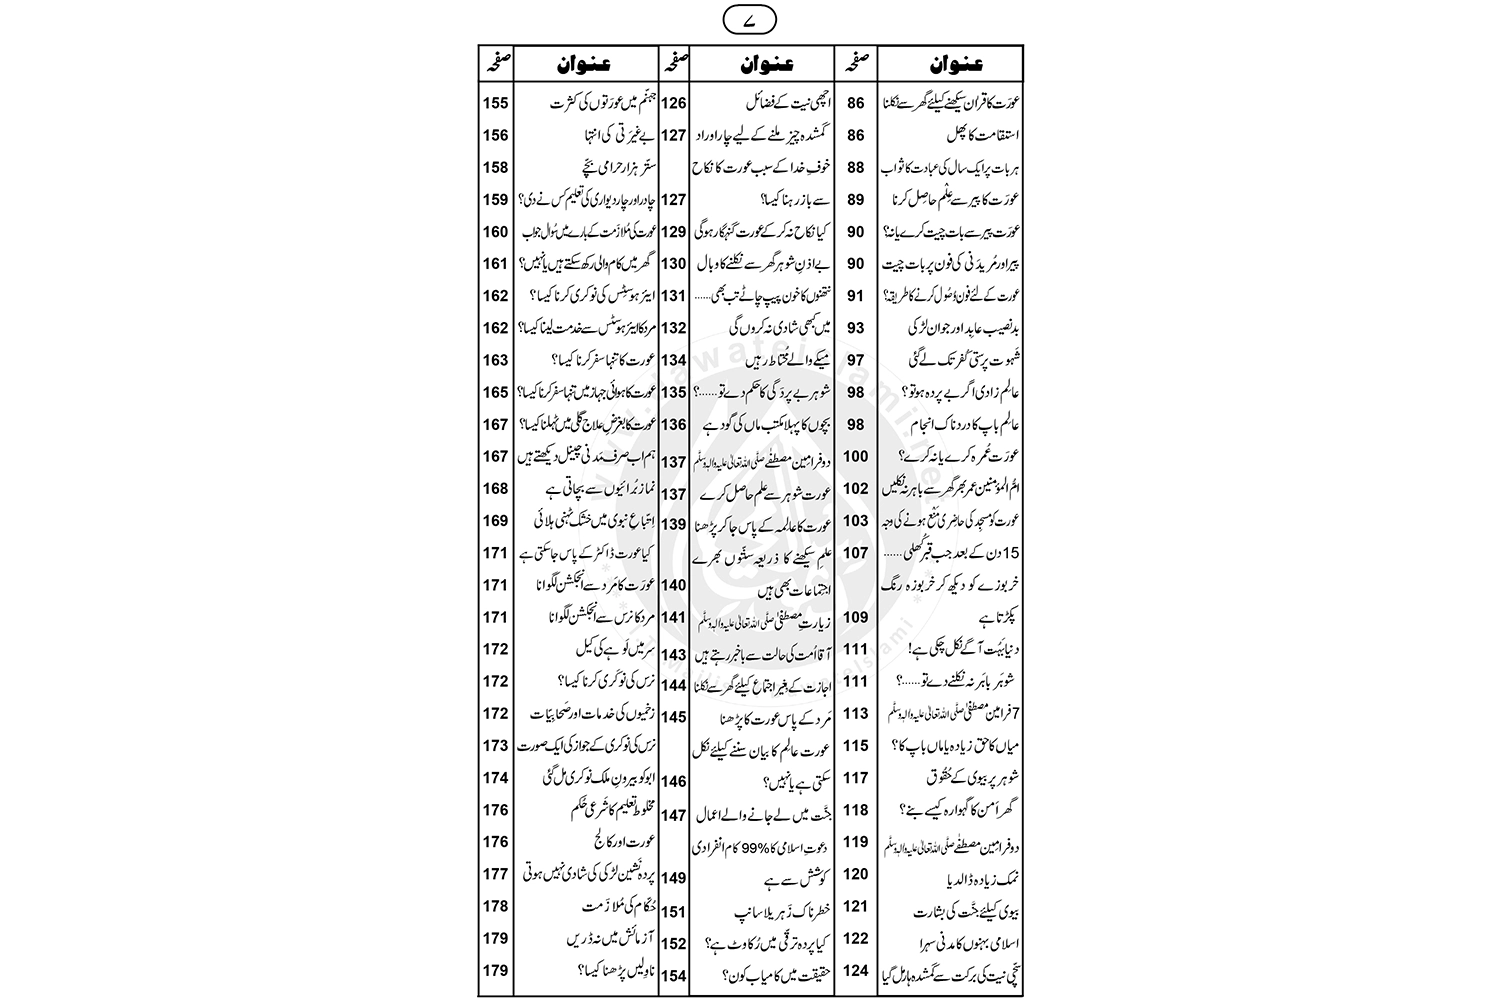 ۷
عنوان صفحہ عنوان صفحہ عنوان صفحہ
عورَت کا قراٰن سیکھنے کیلئے گھر سے نکلنا 86
استقامت کا پھل 86
ہر بات پر ایک سال کی عبادت کا ثواب 88
عورَت کا پیر سے عِلْم حاصِل کرنا 89
عورَت پیر سے بات چیت کرے یا نہ؟ 90
پیر اور مُریدَنی کی فون پر بات چیت 90
عورت کے لئے فون وُصُول کرنے کا طریقہ؟ 91
بد نصیب عابِد اور جوان لڑکی 93
شَہوت پرستی کُفر تک لے گئی 97
عالِم زادی اگر بے پردہ ہو تو؟ 98
عالِم باپ کا دردناک انجام 98
عورَت عُمرہ کرے یا نہ کرے؟ 100
امُّ المؤمنین عمر بھر گھر سے باہَر نہ نکلیں 102
عورت کو مسجِد کی حاضِری مَنْع ہونے کی وجہ 103
15 دن کے بعد جب قبر کُھلی...... 107
خربوزے کو دیکھ کر خربوزہ رنگ
پکڑتا ہے 109
دنیا بَہُت آگے نکل چکی ہے! 111
شوہَر باہَر نہ نکلنے دے تو......؟ 111
7 فرامین مصطفٰی صلَّی اللہ تعالٰی علیہ واٰلہٖ وسلَّم 113
میاں کا حق زیادہ یا ماں باپ کا؟ 115
شوہر پر بیوی کے حُقُوق 117
گھر اَمن کا گہوارہ کیسے بنے؟ 118
دو فرامینِ مصطفٰے صلَّی اللہ تعالٰی علیہ واٰلہٖ وسلَّم 119
نمک زیادہ ڈالدیا 120
بیوی کیلئے جنّت کی بشارت 121
اسلامی بہنوں کا مَدَنی سہرا 122
سچّی نیت کی برکت سے گمشدہ ہار مل گیا 124
اچّھی نیت کے فضائل 126
گمشدہ چیز ملنے کے لیے چار اوراد 127
خوفِ خدا کے سبب عورت کا نکاح
سے باز رہنا کیسا؟ 127
کیا نکاح نہ کر کے عورت گنہگار ہوگی 129
بے اِذنِ شوہر گھر سے نکلنے کا وبال 130
نتھنوں کا خون پیپ چاٹے تب بھی...... 131
میں کبھی شادی نہ کروں گی 132
میکے والے مُحتاط رہیں 134
شوہر بے پردَگی کا حکم دے تو......؟ 135
بچوں کا پہلا مکتب ماں کی گود ہے 136
دو فرامینِ مصطفٰے صلَّی اللہ تعالٰی علیہ واٰلہٖ وسلَّم 137
عورت شوہر سے علم حاصل کرے 137
عورت کا عالِمہ کے پاس جا کر پڑھنا 139
علم سیکھنے کا ذریعہ سنّتوں بھرے
اجتماعات بھی ہیں 140
زیارتِ مصطفٰی صلَّی اللہ تعالٰی علیہ واٰلہٖ وسلَّم 141
آقا اُمت کی حالت سے باخبر رہتے ہیں 143
اجازت کے بغیر اجتماع کیلئے گھر سے نکلنا 144
مَرد کے پاس عورت کا پڑھنا 145
عورت عالِم کا بیان سننے کیلئے نکل
سکتی ہے یا نہیں؟ 146
جنّت میں لے جانے والے اعمال 147
دعوتِ اسلامی کا 99% کام انفرادی
کوشش سے ہے 149
خطرناک زَہریلا سانپ 151
کیا پردہ ترقّی میں رُکاوٹ ہے؟ 152
حقیقت میں کامیاب کون؟ 154
جہنّم میں عورَتوں کی کثرت 155
بے غیرَتی کی انتہا 156
ستّر ہزار حرامی بچّے 158
چادر اور چار دیواری کی تعلیم کس نے دی؟ 159
عورت کی مُلازَمت کے بارے میں سُوال جواب 160
گھر میں کام والی رکھ سکتے ہیں یا نہیں؟ 161
ایئر ہوسٹِس کی نوکری کرنا کیسا؟ 162
مرد کا ایئر ہوسٹس سے خدمت لینا کیسا؟ 162
عورت کا تنہا سفر کرنا کیسا؟ 163
عورت کا ہوائی جہاز میں تنہا سفر کرنا کیسا؟ 165
عورت کا بغرضِ علاج گلی میں ٹہلنا کیسا؟ 167
ہم اب صرف مَدنی چینل دیکھتے ہیں 167
نماز بُرائیوں سے بچاتی ہے 168
اِتّباعِ نبوی میں خشک ٹہنی ہلائی 169
کیا عورت ڈاکٹر کے پاس جا سکتی ہے 171
عورَت کا مَرد سے اِنجکشن لگوانا 171
مرد کا نرس سے اِنجکشن لگوانا 171
سر میں لَوہے کی کیل 172
نرس کی نوکَری کرنا کیسا؟ 172
زخمیوں کی خدمات اور صَحابیّات 172
نرس کی نوکری کے جواز کی ایک صورت 173
ابو کو بیرونِ ملک نوکری مل گئی 174
مخلوط تعلیم کا شَرعی حُکم 176
عورت اور کالج 176
پردہ نَشین لڑکی کی شادی نہیں ہوتی 177
حُکّام کی مُلازَمت 178
آزمائش میں نہ ڈریں 179
ناوِلیں پڑھنا کیسا؟ 179
www.dawateislami.net